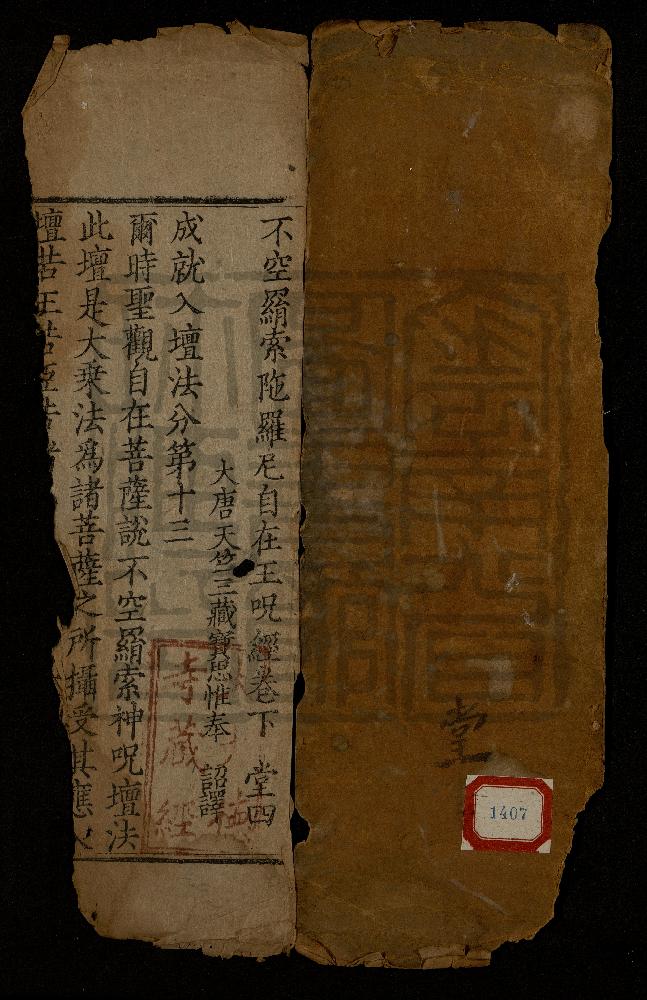 堂
1407
不空羂索陁羅尼自在王呪經卷下 堂四
大唐天竺三藏寶思惟奉 詔譯
成就入壇法分第十三
爾時聖觀自在菩薩說不空羂索神呪壇法
此壇是大乘法爲諸菩薩之所攝受其應
壇若王若
寺藏經